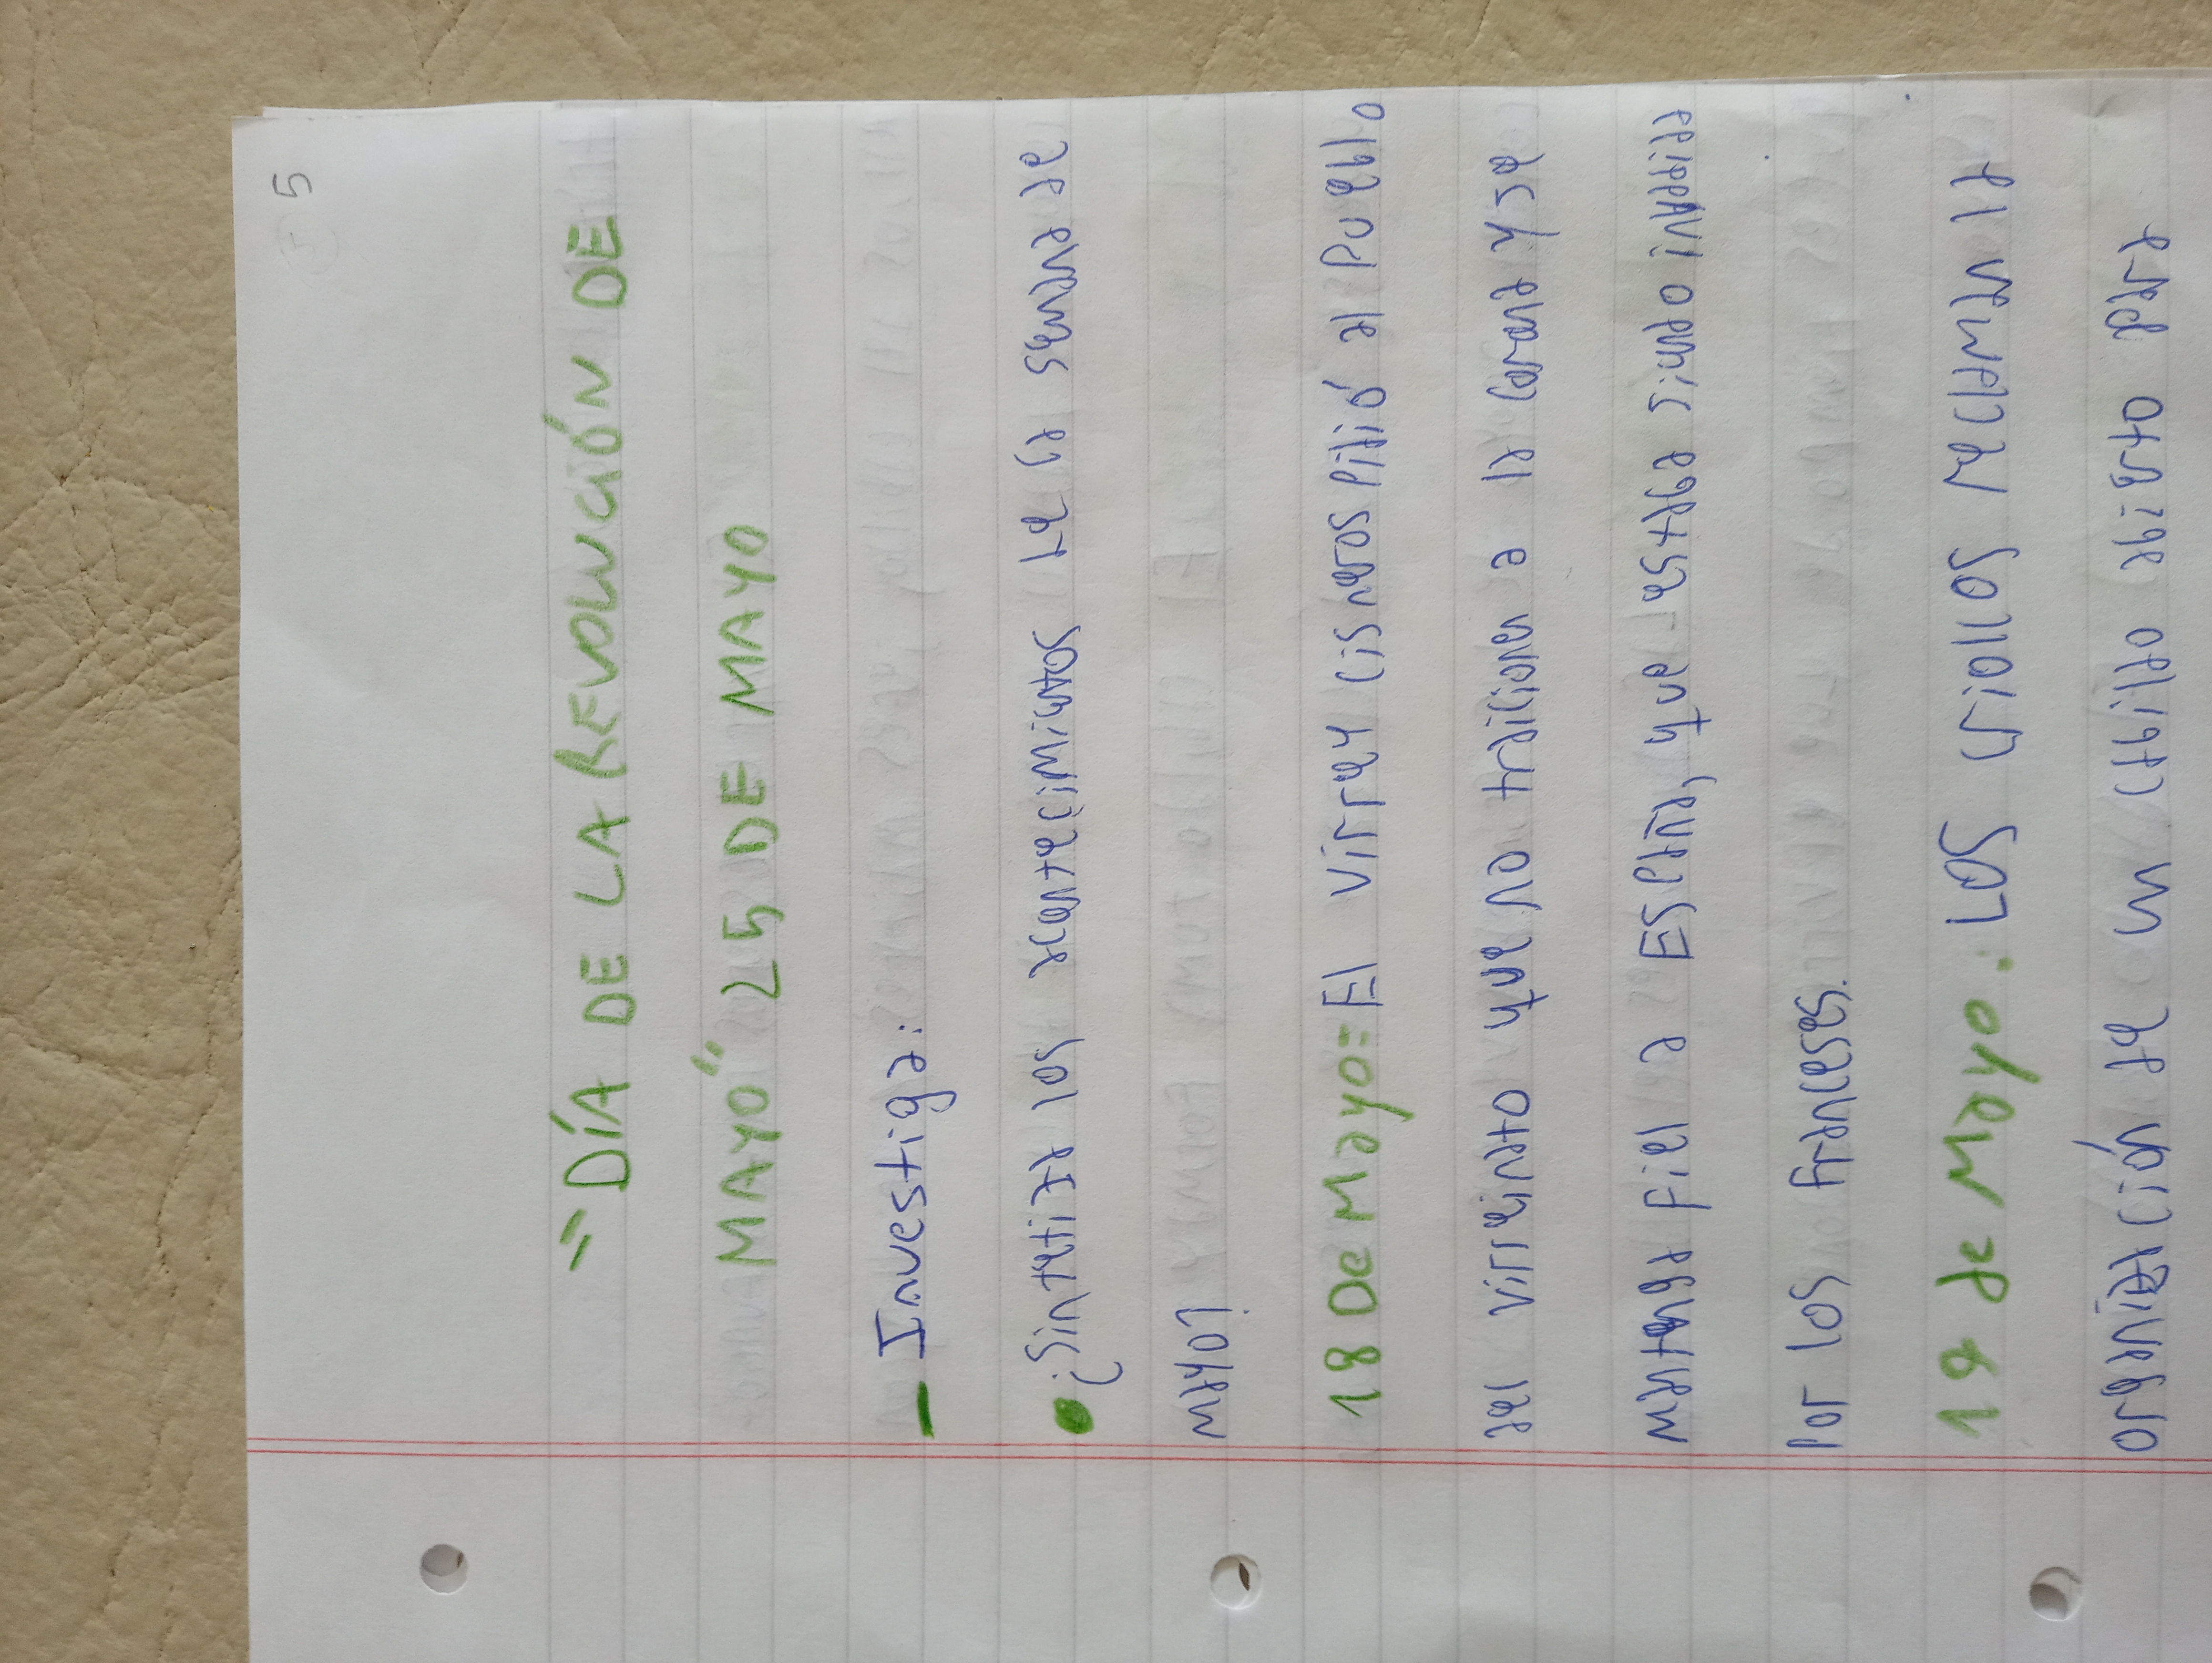 5
"DÍA DE LA REVOLUCIÓN DE
MAYO" 25 DE MAYO
- Investiga:
• ¿Sintetiza los acontecimientos de la semana de
mayo?
18 De Mayo= El virrey Cisneros pidió al Pueblo
del virreinto que no traicionen a la corona y se
mantenga fiel a España, que estaba siendo invadida
por los franceses.
19 de Mayo: Los criollos reclaman la
organización de un cabildo abierto para